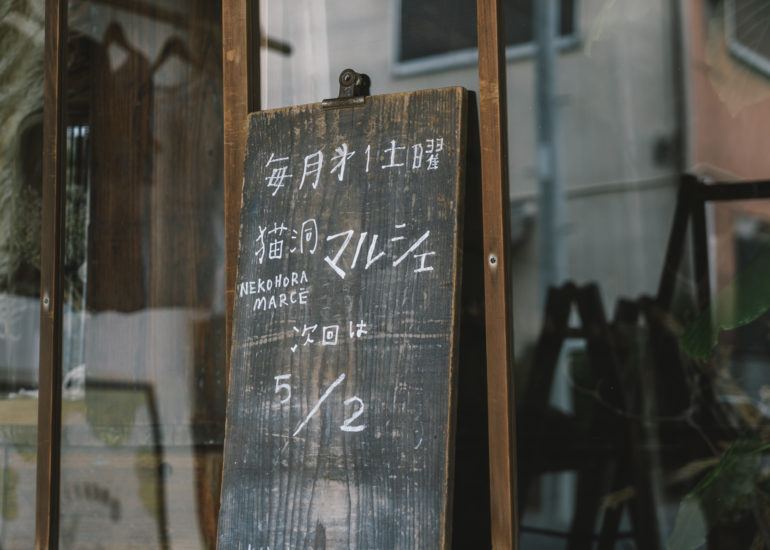 毎月㐧1土曜
猫洞マルシェ
NEKOHORA
MARCE
次回は
5/2